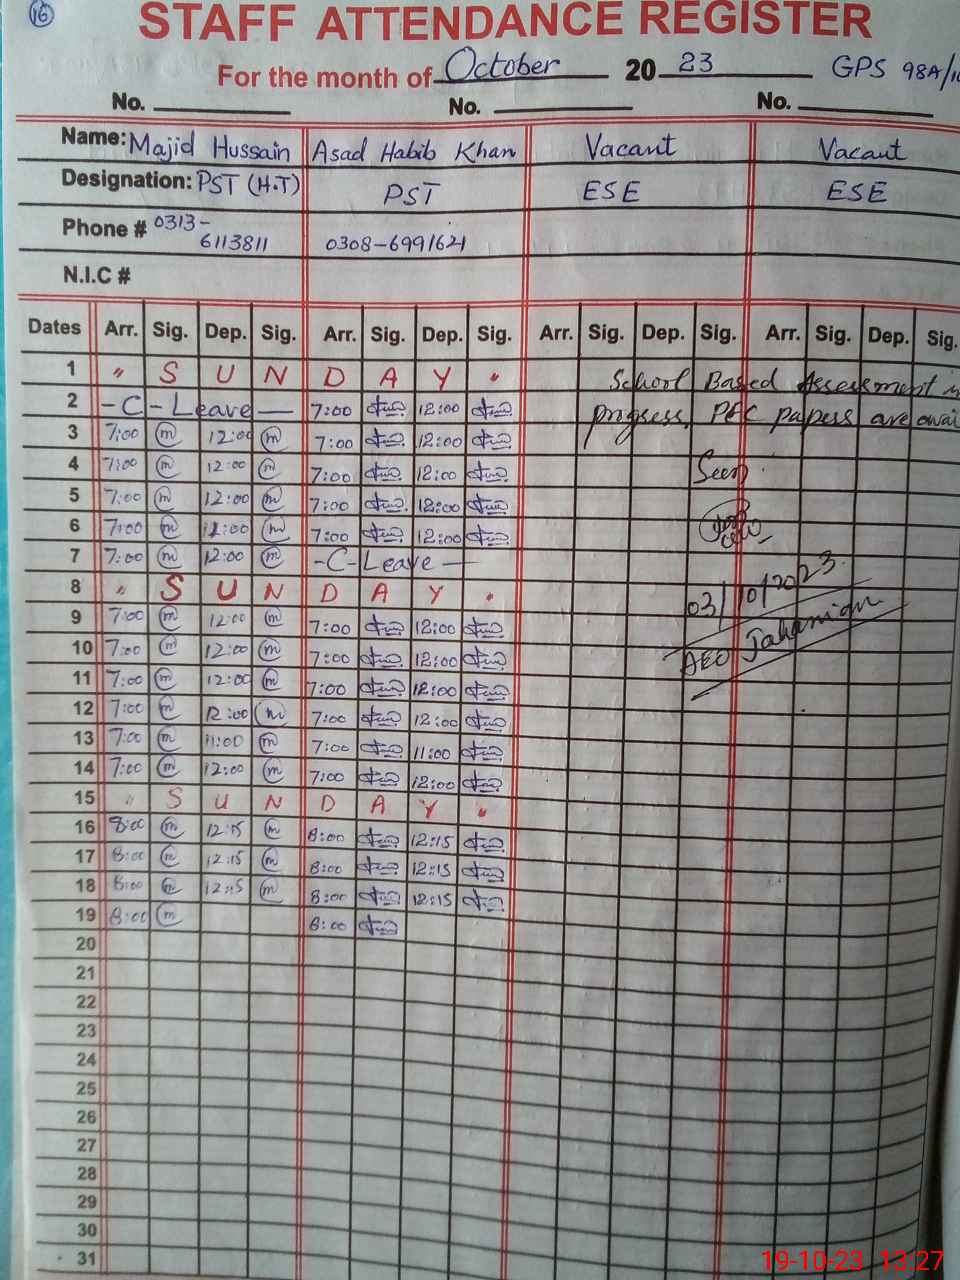 16
STAFF ATTENDANCE REGISTER
For the month of October 20 23 GPS 98A/
No. No. No.
Name: Majid Hussain Asad Habib Khan Vacant Vacant
Designation: PST (H.T) PST ESE ESE
Phone # 0313-
6113811 0308-6991621
N.I.C #
Dates Arr. Sig. Dep. Sig. Arr. Sig. Dep. Sig. Arr. Sig. Dep. Sig. Arr. Sig. Dep. Sig.
1 " S U N D A Y " School Based Assessment in
2 -C-Leave- 7:00 12:00 progress, PEC papers are
3 7:00 m 12:00 m 7:00 12:00
4 7:00 m 12:00 m 7:00 12:00 Seen
5 7:00 m 12:00 m 7:00 12:00
6 7:00 m 12:00 m 7:00 12:00
7 7:00 m 12:00 m -C-Leave-
8 " S U N D A Y " 03/10/2023
9 7:00 m 12:00 m 7:00 12:00
10 7:00 m 12:00 m 7:00 12:00 AEO Jahanian
11 7:00 m 12:00 m 7:00 12:00
12 7:00 m 12:00 m 7:00 12:00
13 7:00 m 11:00 m 7:00 11:00
14 7:00 m 12:00 m 7:00 12:00
15 " S U N D A Y "
16 8:00 m 12:15 m 8:00 12:15
17 8:00 m 12:15 m 8:00 12:15
18 8:00 m 12:15 m 8:00 12:15
19 8:00 m 8:00
20
21
22
23
24
25
26
27
28
29
30
31
19-10-23 13:27